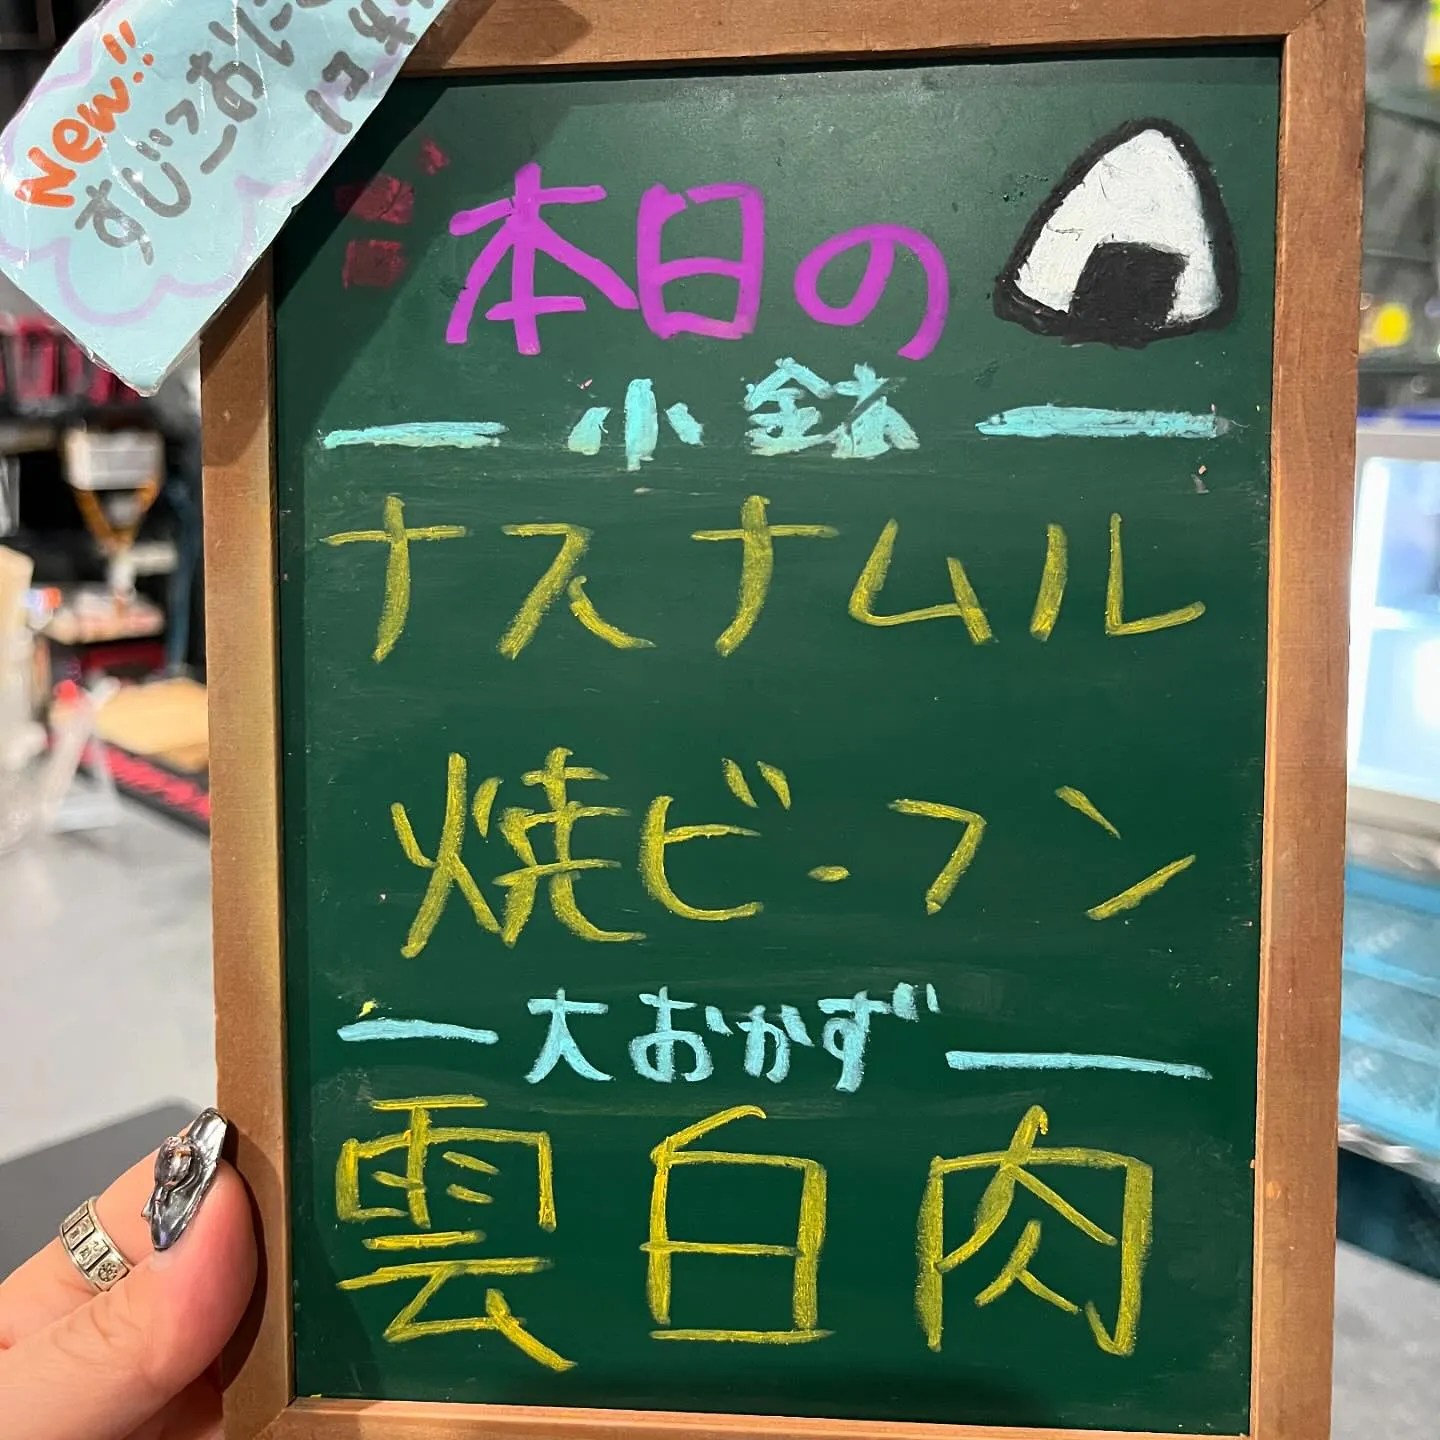 New!!
すじこおに
本日の
小鉢
ナスナムル
焼ビーフン
大おかず
雲白肉